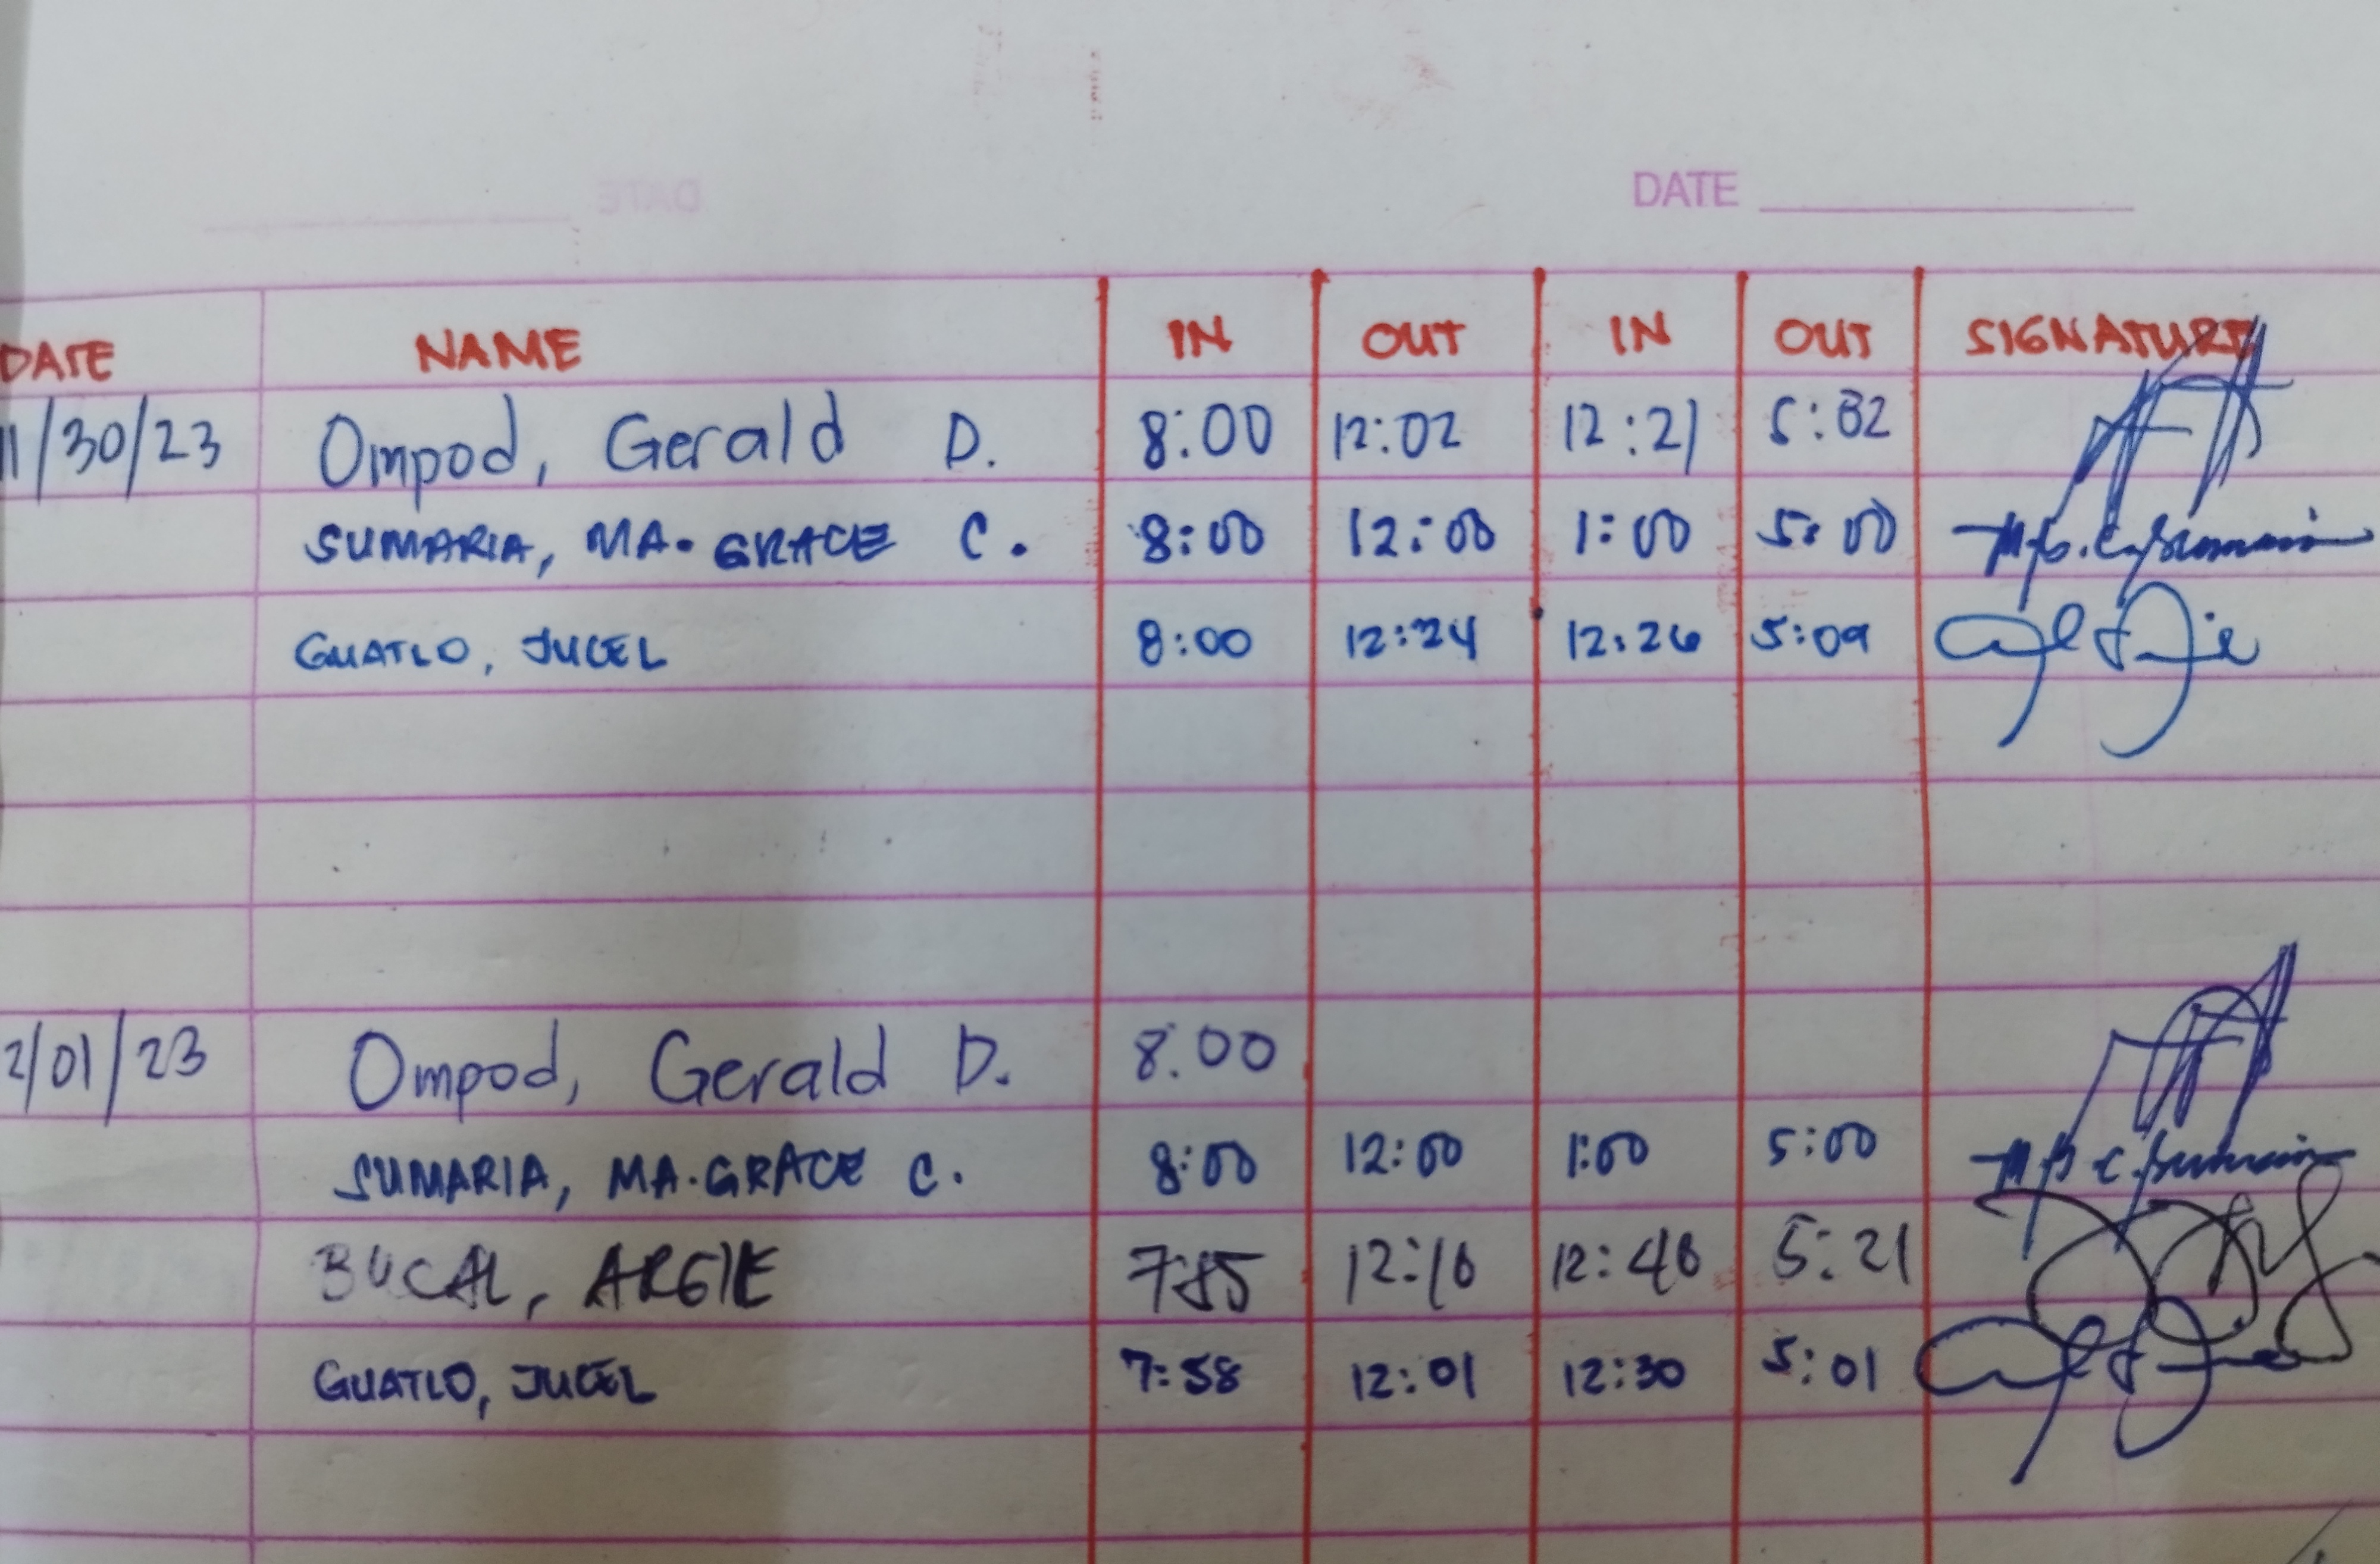 DATE
DATE NAME IN OUT IN OUT SIGNATURE
11/30/23 Ompod, Gerald D. 8:00 12:02 12:21 5:02
SUMARIA, MA. GRACE C. 8:00 12:00 1:00 5:00
GUATLO, JUCEL 8:00 12:24 12:26 5:09
2/01/23 Ompod, Gerald D. 8:00
SUMARIA, MA. GRACE C. 8:00 12:00 1:00 5:00
BUCAL, ARGIE 12:16 12:46 5:21
GUATLO, JUCEL 7:58 12:01 12:30 5:01